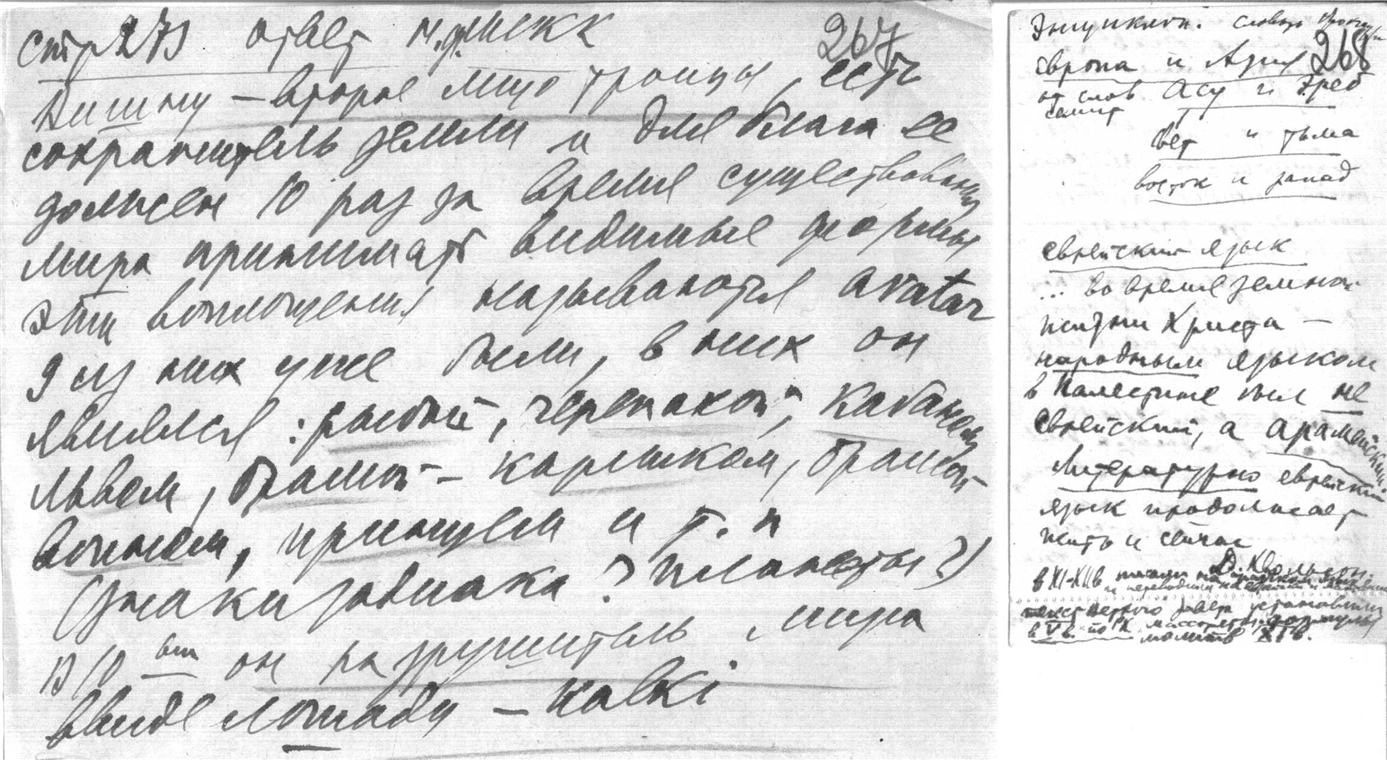 стр 273 ответ
267
Вишну – второе лицо троицы, есть
сохранитель земли и для блага ее
должен 10 раз за время существования
мира принимать видимые формы
эти воплощения называются avatar
9 из них уже были, в них он
являлся: рыбой, черепахой, кабаном,
львом, брамой – карликом, брамой
воином, принцем и т. п
(знаки зодиака? планеты?)
В 10 ый он разрушитель мира
ввиде лошади – kalki
Энциклоп. словарь
268
Европа и Азия
от слов Асу и Эреб
свет и тьма
восток и запад
еврейский язык
... во время земной
жизни Христа –
народным языком
в Палестине был не
еврейский, а арамейский.
Литературно еврейский
язык продолжает
жить и сейчас
Д. Хвольсон
в XI-XII в.
текст ветхого завета установлен
в V в. по X
молитв XI в.